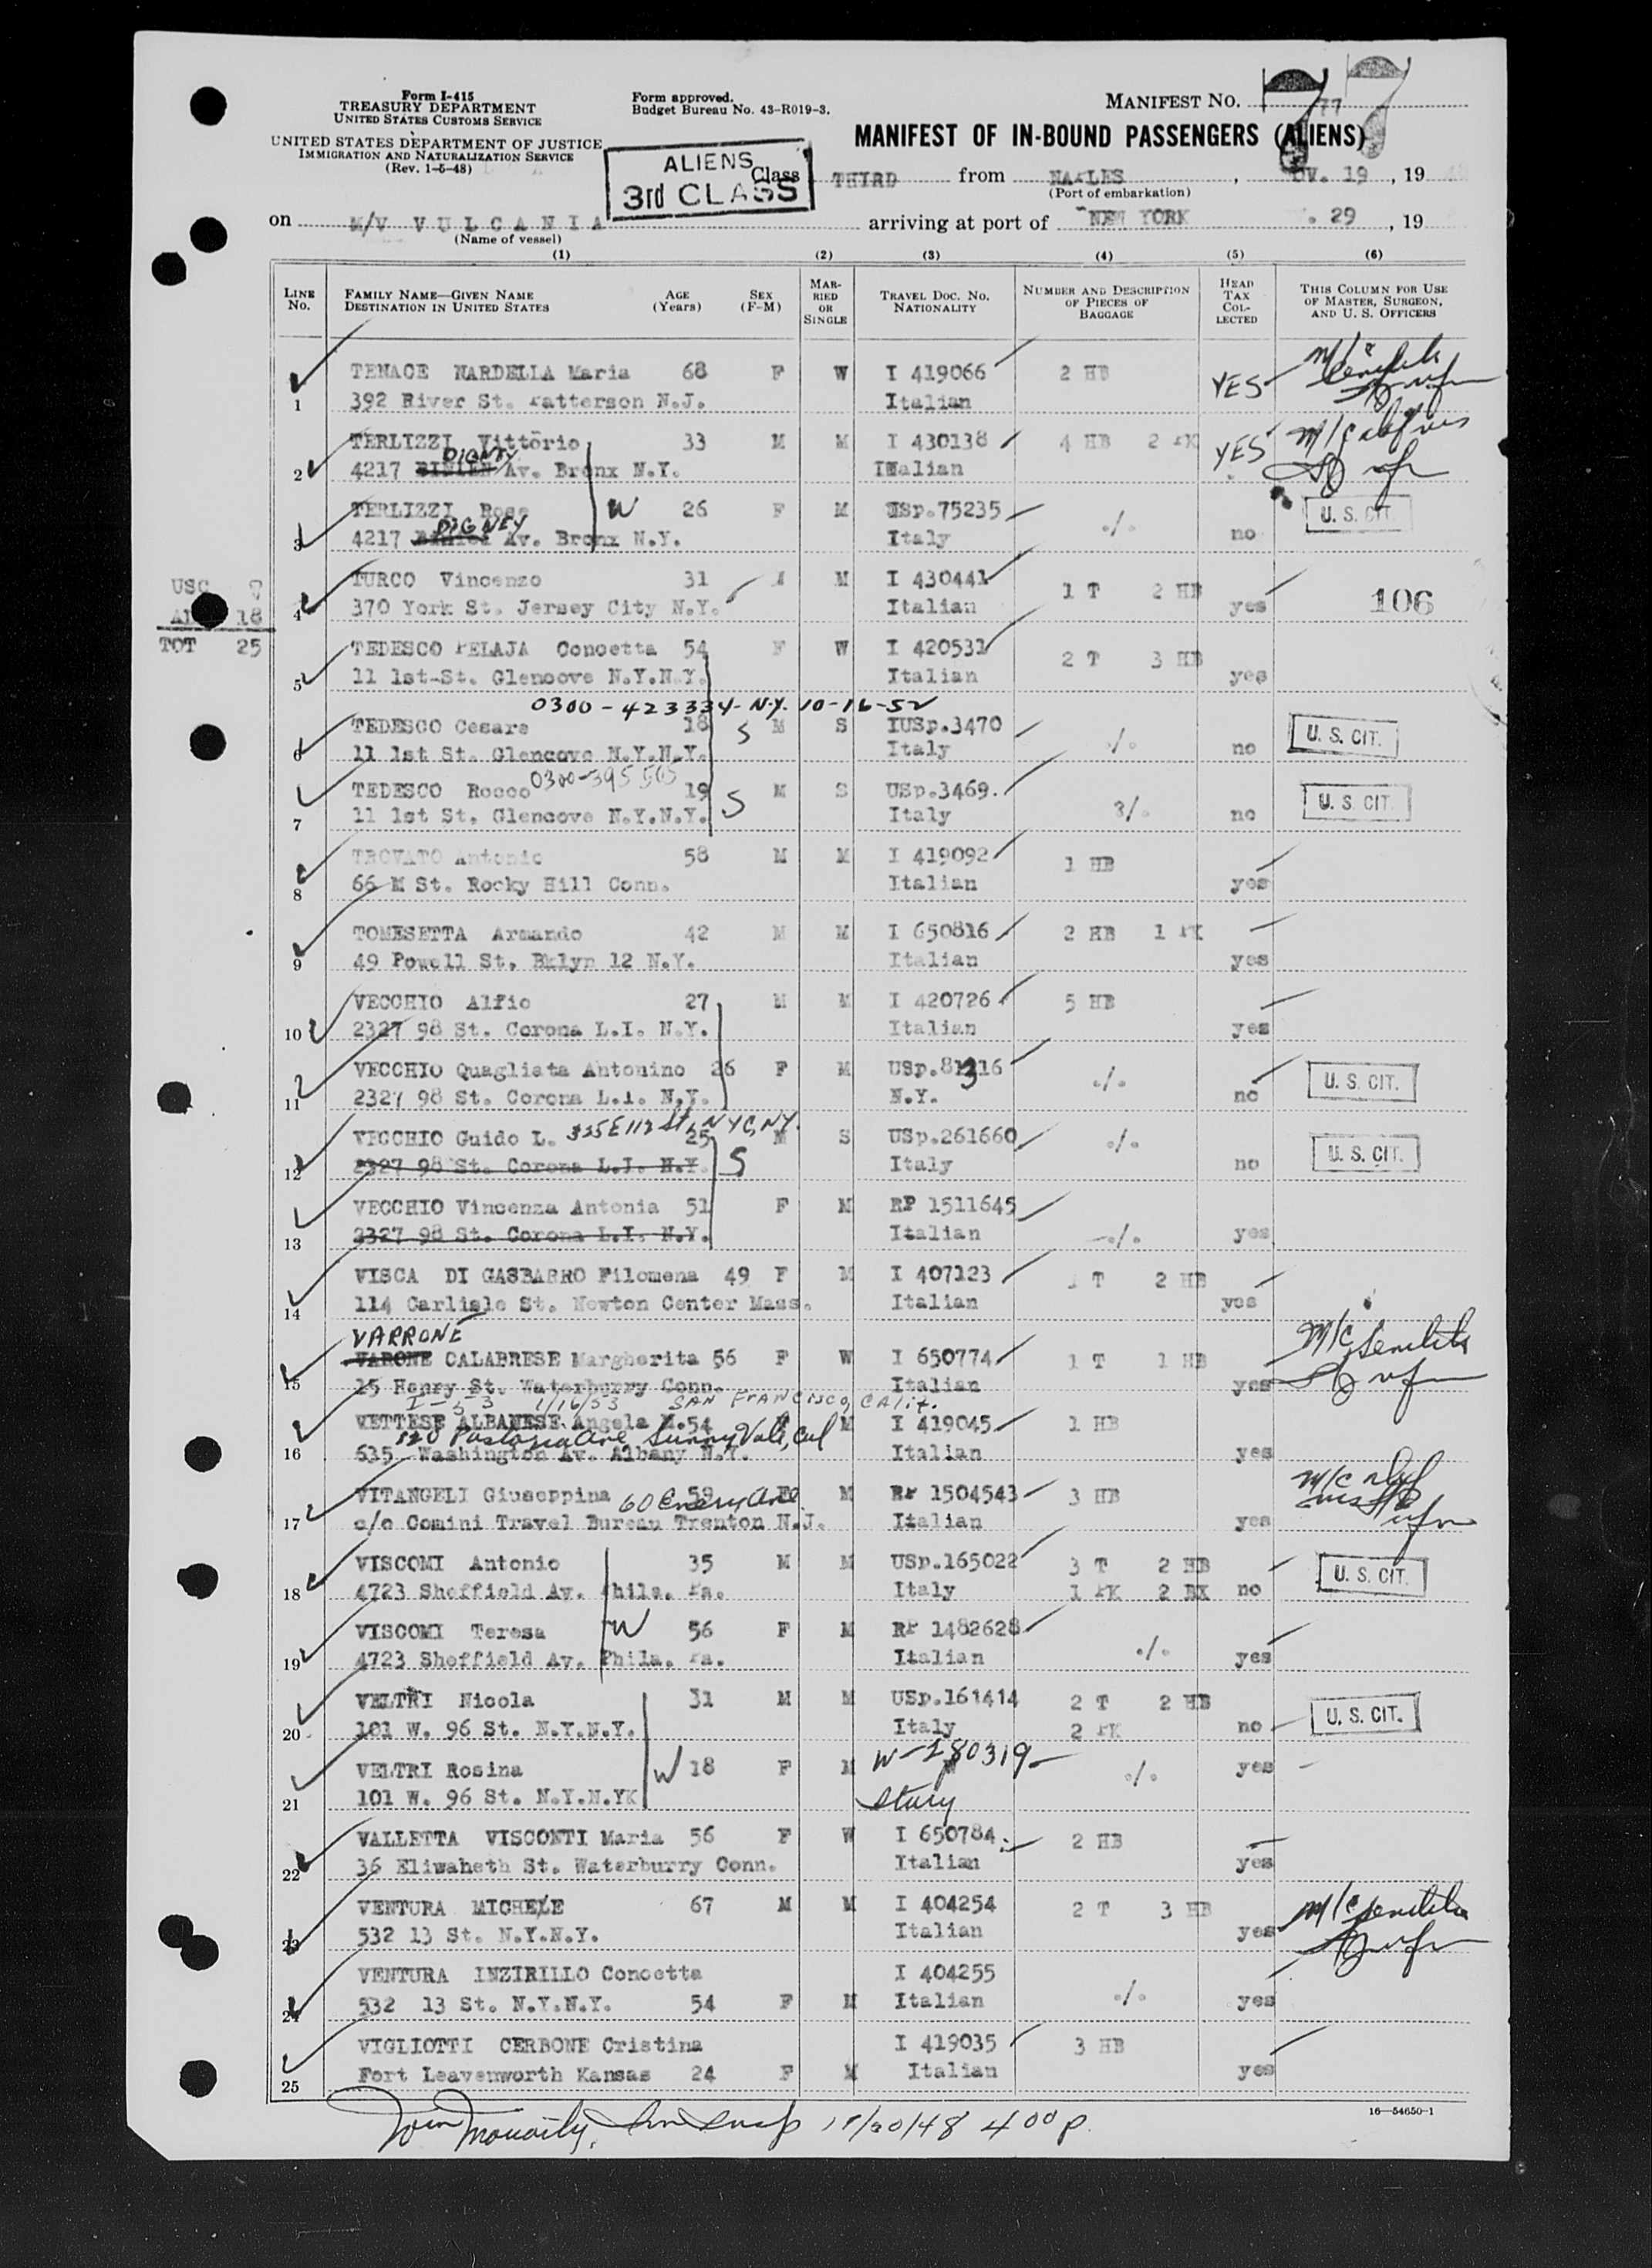 Form I-415
TREASURY DEPARTMENT
UNITED STATES CUSTOMS SERVICE
UNITED STATES DEPARTMENT OF JUSTICE
IMMIGRATION AND NATURALIZATION SERVICE
(Rev. 1-5-48)
Form approved.
Budget Bureau No. 43-R019-3.
MANIFEST NO. 77
77
MANIFEST OF IN-BOUND PASSENGERS (ALIENS)
ALIENS
3rd CLASS
Class THIRD from NAPLES, OV. 19, 19
(Port of embarkation)
on M/V VULCANIA arriving at port of NEW YORK . 29, 19
(Name of vessel)
(1) (2) (3) (4) (5) (6)
LINE No. FAMILY NAME—GIVEN NAME DESTINATION IN UNITED STATES AGE (Years) SEX (F-M) MARRIED OR SINGLE TRAVEL DOC. NO. NATIONALITY NUMBER AND DESCRIPTION OF PIECES OF BAGGAGE HEAD TAX COLLECTED THIS COLUMN FOR USE OF MASTER, SURGEON, AND U. S. OFFICERS
TENACE NARDELLA Maria 68 F W I 419066 2 HB YES
1 392 River St. Patterson N.J. Italian
TERLIZZI Vittorio 33 M M I 430138 4 HB 2 PK YES
DIGNEY
2 4217 Av. Bronx N.Y. Italian
TERLIZZI Rosa W 26 F M USp.75235 ./. U. S. CIT.
DIGNEY
3 4217 Av. Bronx N.Y. Italy no
USC
TURCO Vincenzo 31 M M I 430441 1 T 2 HB
AL 18
4 370 York St. Jersey City N.Y. Italian yes 106
TOT 25
TEDESCO PELAJA Concetta 54 F W I 420531 2 T 3 HB
5 11 1st-St. Glencove N.Y.N.Y. Italian yes
0300-423334-N.Y. 10-16-52
TEDESCO Cesare 18 S M S IUSp.3470 ./. U. S. CIT.
6 11 1st St. Glencove N.Y.N.Y. Italy no
TEDESCO Rocco 0300-395 19 S M S USp.3469. U. S. CIT.
7 11 1st St. Glencove N.Y.N.Y. Italy no
TROVATO Antonio 58 M M I 419092 1 HB
8 66 M St. Rocky Hill Conn. Italian yes
TOMESETTA Armando 42 M M I 650816 2 HB 1 PK
9 49 Powell St. Bklyn 12 N.Y. Italian yes
VECCHIO Alfio 27 M M I 420726 5 HB
10 2327 98 St. Corona L.I. N.Y. Italian yes
VECCHIO Quagliata Antonino 26 F M USp.81316 ./. U. S. CIT.
11 2327 98 St. Corona L.I. N.Y. N.Y. no
VECCHIO Guido L. 335 E 112 St, NYC, NY. 25 M S USp.261660 ./. U. S. CIT.
12 2327 98 St. Corona L.I. N.Y. S Italy no
VECCHIO Vincenza Antonia 51 F M RP 1511645
13 2327 98 St. Corona L.I. N.Y. Italian ./. yes
VISCA DI GASBARRO Filomena 49 F M I 407123 1 T 2 HB
14 114 Carlisle St. Newton Center Mass. Italian yes
VARRONE
VARONE CALABRESE Margherita 56 F W I 650774 1 T 1 HB M/C Senility
15 15 Henry St. Waterburry Conn. Italian yes
I-53 1/16/53 SAN FRANCISCO, Calif.
VETTESE ALBANESE Angela M. 54 M I 419045 1 HB
120 Pastoria Ave Sunny Vale, Cal
16 635 Washington Av. Albany N.Y. Italian yes
VITANGELI Giuseppina 59 M RP 1504543 3 HB
17 c/o Comini Travel Bureau Trenton N.J. Italian yes
VISCOMI Antonio 35 M M USp.165022 3 T 2 HB U. S. CIT.
18 4723 Sheffield Av. Phila. Pa. Italy 1 PK 2 BX no
VISCOMI Teresa W 56 F M RP 1482628
19 4723 Sheffield Av. Phila. Pa. Italian ./. yes
VELTRI Nicola 31 M M USp.161414 2 T 2 HB U. S. CIT.
20 101 W. 96 St. N.Y.N.Y. Italy 2 PK no
VELTRI Rosina W 18 F M W-280319 ./. yes
21 101 W. 96 St. N.Y.N.YK Italy
VALLETTA VISCONTI Maria 56 F W I 650784 2 HB
22 36 Eliwaheth St. Waterburry Conn. Italian yes
VENTURA MICHELE 67 M M I 404254 2 T 3 HB M/C Senility
23 532 13 St. N.Y.N.Y. Italian yes
VENTURA INZIRILLO Concetta I 404255
24 532 13 St. N.Y.N.Y. 54 F M Italian ./. yes
VIGLIOTTI CERBONE Cristina I 419035 3 HB
25 Fort Leavenworth Kansas 24 F M Italian yes
16—54650-1